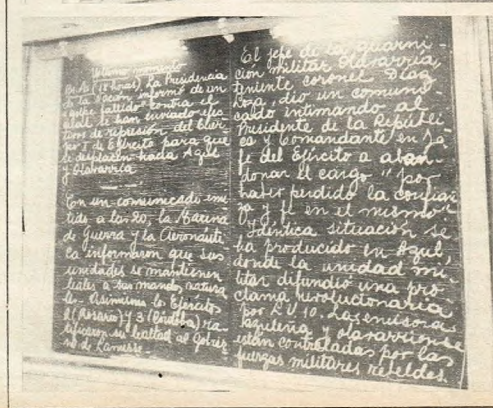 Ultimo momento
Bs. As (18 horas) La Presidencia
de la Nación informó de un
golpe fallido contra el
cual se han enviado efec
tivos de represión del Cuer-
po I de Ejército para que
se desplacen hacia Azul
y Olavarría
Con un comunicado emi
tido a las 20, la Marina
de Guerra y la Aeronáuti
ca informaron que sus
unidades se mantienen
leales a sus mandos natura
les. Asimismo los Ejércitos
2 (Rosario) y 3 (Córdoba) ra-
tificaron su lealtad al gobier
no de Lanusse.
El jefe de la guarni-
ción militar Olavarría,
teniente coronel Díaz
Loza, dió un comuni-
cado intimando al
Presidente de la Repúbli-
ca y Comandante en Je
fe del Ejército a aban-
donar el cargo "por
haber perdido la confian
za y fe en el mismo".
Idéntica situación se
ha producido en Azul,
donde la unidad mi-
litar difundió una pro-
clama revolucionaria
por L.U 10. Las emisoras
azuleña y olavarriense
están controladas por las
fuerzas militares rebeldes.